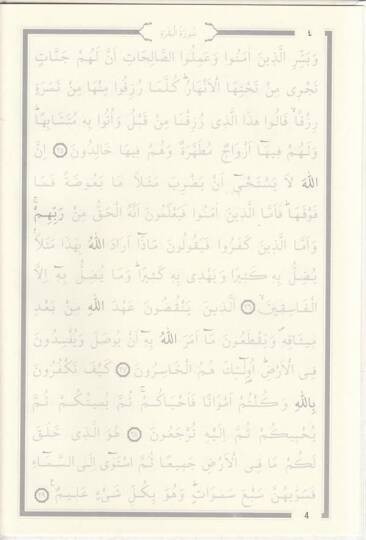 ٤ سُورَةُ الْبَقَرَةِ
وَبَشِّرِ الَّذِينَ اٰمَنُوا وَعَمِلُوا الصَّالِحَاتِ اَنَّ لَهُمْ جَنَّاتٍ
تَجْرِى مِنْ تَحْتِهَا الْاَنْهَارُۜ كُلَّمَا رُزِقُوا مِنْهَا مِنْ ثَمَرَةٍ
رِزْقًاۙ قَالُوا هٰذَا الَّذِى رُزِقْنَا مِنْ قَبْلُ وَاُتُوا بِهِ مُتَشَابِهًاۜ
وَلَهُمْ فِيهَٓا اَزْوَاجٌ مُطَهَّرَةٌ وَهُمْ فِيهَا خَالِدُونَ ﴿٢٥﴾ اِنَّ
اللّٰهَ لَا يَسْتَحْيٖٓ اَنْ يَضْرِبَ مَثَلًا مَا بَعُوضَةً فَمَا
فَوْقَهَاۜ فَاَمَّا الَّذِينَ اٰمَنُوا فَيَعْلَمُونَ اَنَّهُ الْحَقُّ مِنْ رَبِّهِمْۚ
وَاَمَّا الَّذِينَ كَفَرُوا فَيَقُولُونَ مَاذَٓا اَرَادَ اللّٰهُ بِهٰذَا مَثَلًاۢ
يُضِلُّ بِهِ كَثِيرًا وَيَهْدِى بِهِ كَثِيرًاۜ وَمَا يُضِلُّ بِهٖٓ اِلَّا
الْفَاسِقِينَۙ ﴿٢٦﴾ اَلَّذِينَ يَنْقُضُونَ عَهْدَ اللّٰهِ مِنْ بَعْدِ
مِيثَاقِهِ وَيَقْطَعُونَ مَٓا اَمَرَ اللّٰهُ بِهٖٓ اَنْ يُوصَلَ وَيُفْسِدُونَ
فِى الْاَرْضِۜ اُولٰٓئِكَ هُمُ الْخَاسِرُونَ ﴿٢٧﴾ كَيْفَ تَكْفُرُونَ
بِاللّٰهِ وَكُنْتُمْ اَمْوَاتًا فَاَحْيَاكُمْۚ ثُمَّ يُمِيتُكُمْ ثُمَّ
يُحْيِيكُمْ ثُمَّ اِلَيْهِ تُرْجَعُونَ ﴿٢٨﴾ هُوَ الَّذِى خَلَقَ
لَكُمْ مَا فِى الْاَرْضِ جَمِيعًا ثُمَّ اسْتَوٰٓى اِلَى السَّمَٓاءِ
فَسَوّٰيهُنَّ سَبْعَ سَمٰوَاتٍۜ وَهُوَ بِكُلِّ شَيْءٍ عَلِيمٌ۟ ﴿٢٩﴾
4